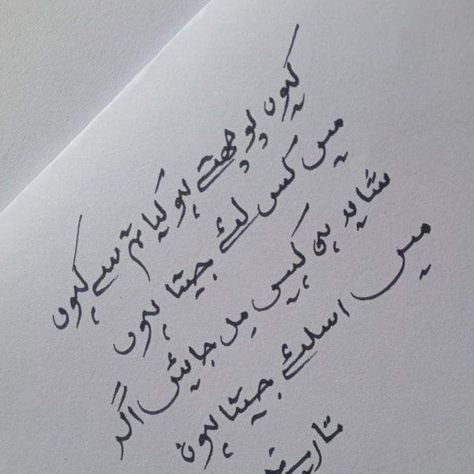 کیوں پوچھتے ہو کیا تم سے کہوں
میں کس لئے جیتا ہوں
شاید ہی کہیں مل جائیں اگر
میں اسلئے جیتا ہوں